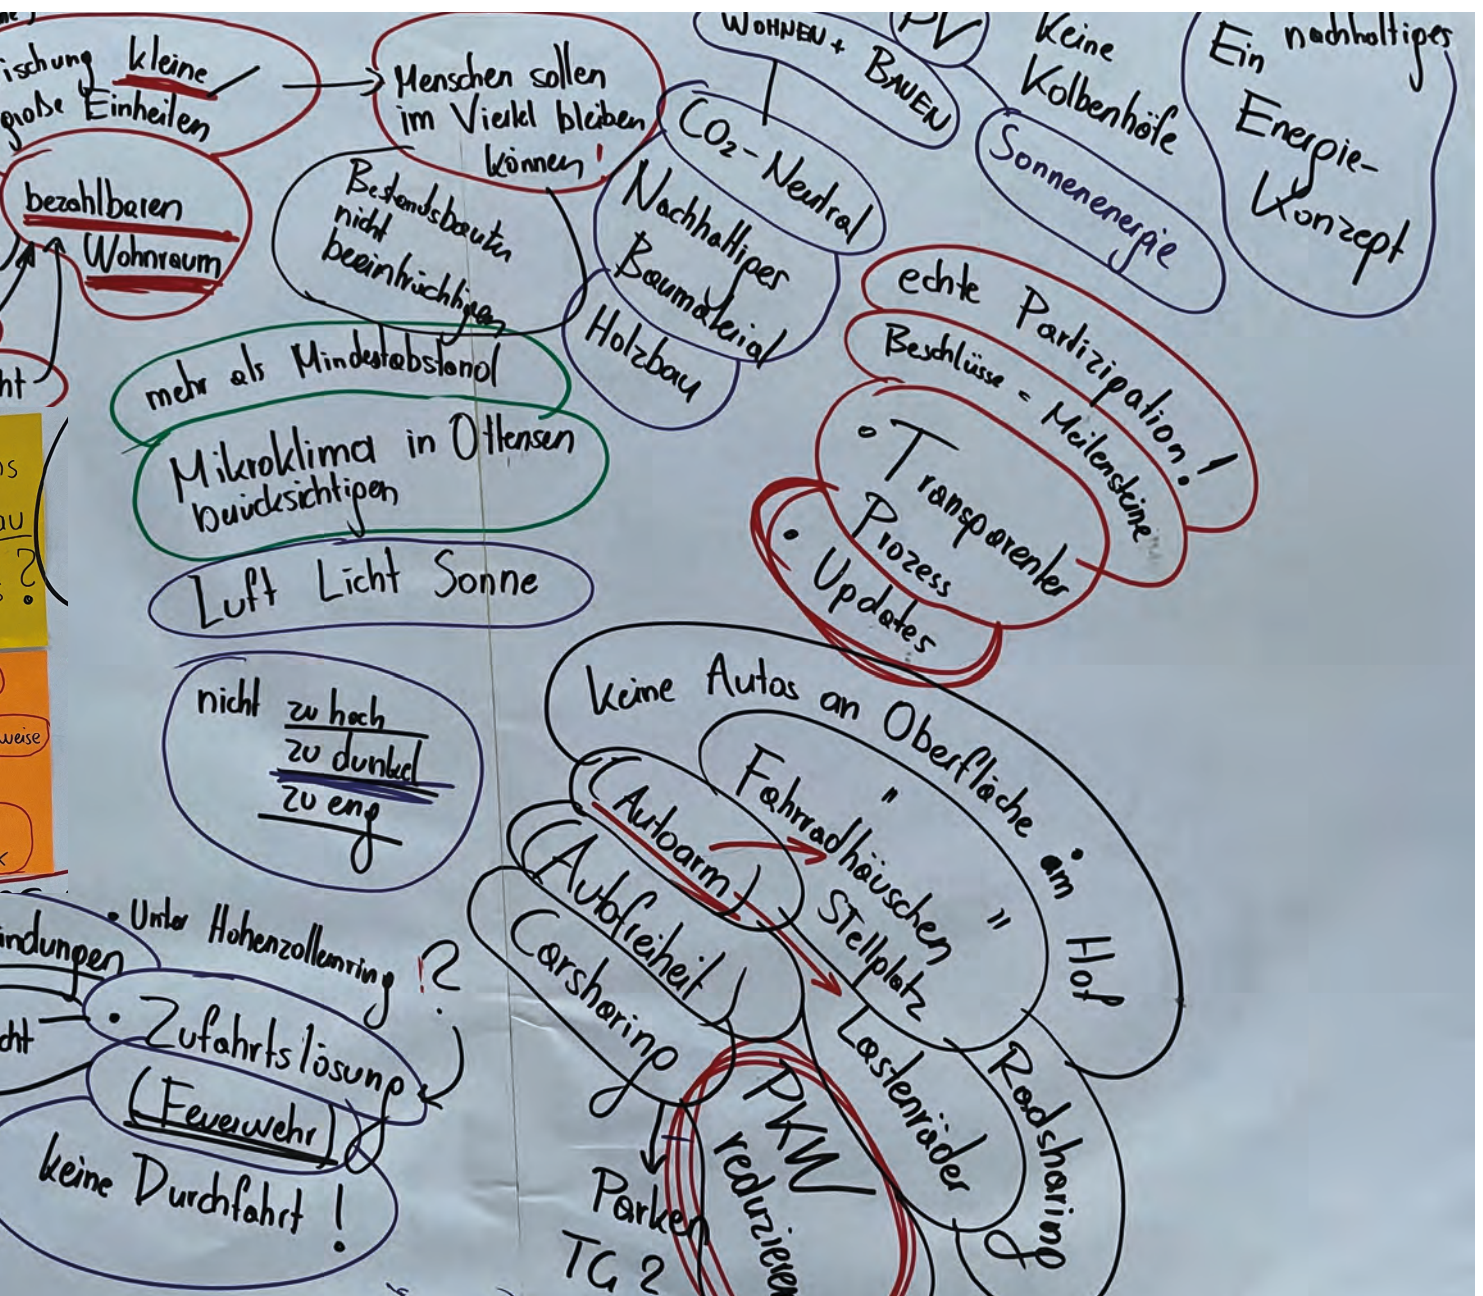 kleine
große Einheiten
bezahlbaren
Wohnraum
Menschen sollen
im Viertel bleiben
können!
Bestandsbauten
nicht
beeinträchtigen
mehr als Mindestabstand
Mikroklima in Ottensen
berücksichtigen
Luft Licht Sonne
nicht zu hoch
zu dunkel
zu eng
WOHNEN +
BAUEN
CO₂-Neutral
Nachhaltiges
Baumaterial
Holzbau
PV
Sonnenenergie
Keine
Kolbenhöfe
Ein nachhaltiges
Energie-
Konzept
echte Partizipation!
Beschlüsse = Meilensteine
• Transparenter
Prozess
• Updates
keine Autos an Oberfläche im Hof
" Fahrradhäuschen "
STellplatz
(Autoarm)
(Autofreiheit)
Carsharing
Lastenräder
Radsharing
PKW
reduzieren
Parken
TG ?
• Unter Hohenzollernring !?
• Zufahrtslösung
(Feuerwehr)
keine Durchfahrt!